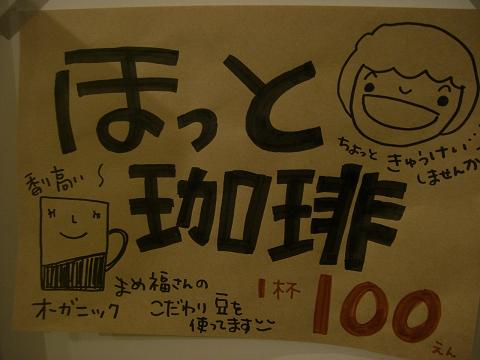 ほっと
珈琲
ちょっと
きゅうけい
しませんか
香り高い〜
オーガニック
まめ福さんの
こだわり豆を
使ってます
1杯
100
えん